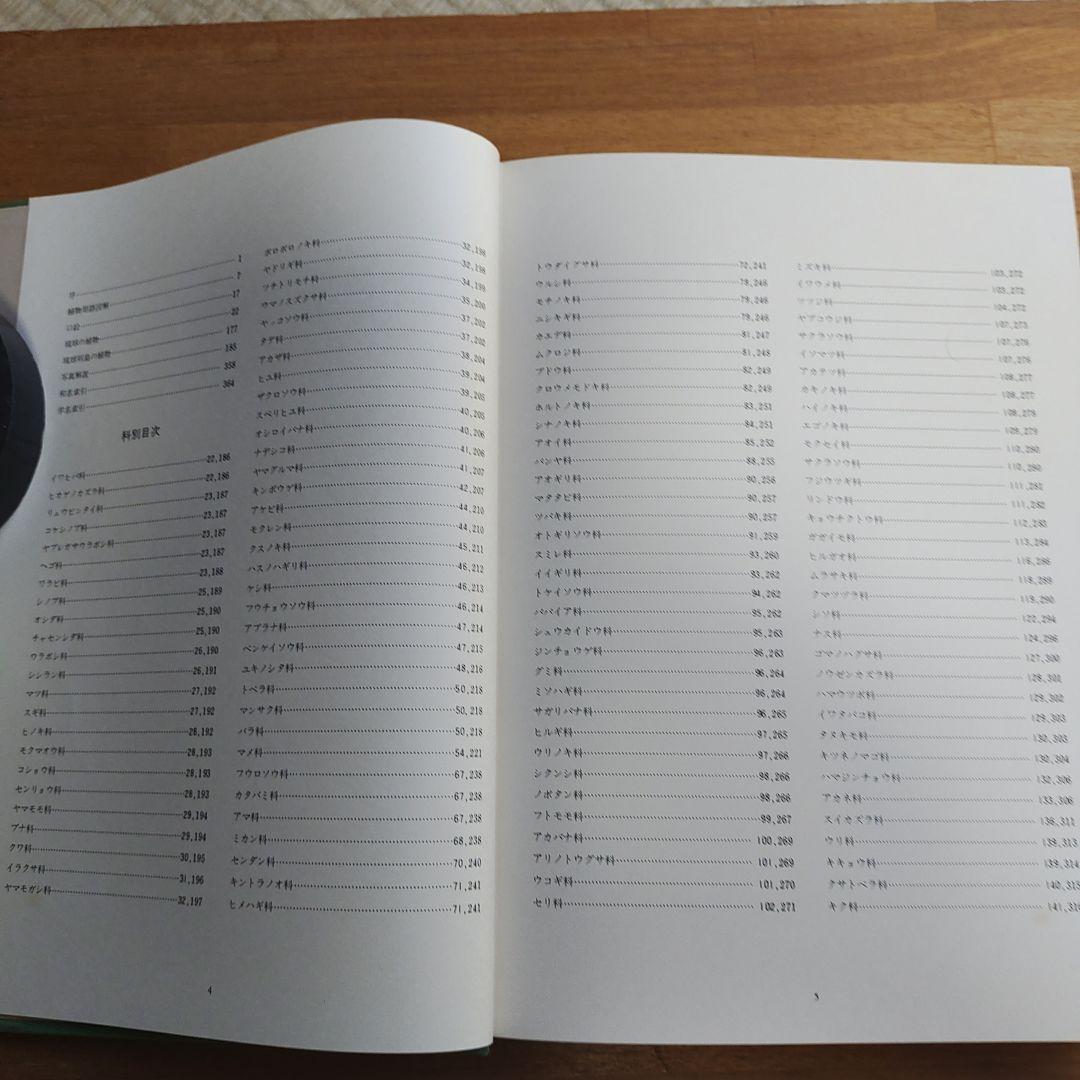 序……1
植物用語図解……
口絵……17
琉球の植物……22
琉球列島の植物……177
写真解説……185
和名索引……358
学名索引……364
科別目次
イワヒバ科……22,186
ヒカゲノカズラ科……22,186
リュウビンタイ科……23,187
コケシノブ科……23,187
ヤブレガサウラボシ科……23,187
ヘゴ科……23,187
ワラビ科……23,188
シノブ科……25,189
オシダ科……25,190
チャセンシダ科……25,190
ウラボシ科……26,190
シシラン科……26,191
マツ科……27,192
スギ科……27,192
ヒノキ科……28,192
モクマオウ科……28,193
コショウ科……28,193
センリョウ科……28,193
ヤマモモ科……29,194
ブナ科……29,194
クワ科……30,195
イラクサ科……31,196
ヤマモガシ科……32,197
ボロボロノキ科……32,198
ヤドリギ科……32,198
ツチトリモチ科……34,199
ウマノスズクサ科……35,200
ヤッコソウ科……37,202
タデ科……37,202
アカザ科……38,204
ヒユ科……39,204
ザクロソウ科……39,205
スベリヒユ科……40,205
オシロイバナ科……40,206
ナデシコ科……41,206
ヤマグルマ科……41,207
キンポウゲ科……42,207
アケビ科……44,210
モクレン科……44,210
クスノキ科……45,211
ハスノハギリ科……46,212
ケシ科……46,213
フウチョウソウ科……46,214
アブラナ科……47,214
ベンケイソウ科……47,215
ユキノシタ科……48,216
トベラ科……50,218
マンサク科……50,218
バラ科……50,218
マメ科……54,221
フウロソウ科……67,238
カタバミ科……67,238
アマ科……67,238
ミカン科……68,238
センダン科……70,240
キントラノオ科……71,241
ヒメハギ科……71,241
4
トウダイグサ科……72,241
ウルシ科……78,246
モチノキ科……78,246
ニシキギ科……79,246
カエデ科……81,247
ムクロジ科……81,248
ブドウ科……82,249
クロウメモドキ科……82,249
ホルトノキ科……83,251
シナノキ科……84,251
アオイ科……85,252
パンヤ科……88,255
アオギリ科……90,256
マタタビ科……90,257
ツバキ科……90,257
オトギリソウ科……91,259
スミレ科……93,260
イイギリ科……93,262
トケイソウ科……94,262
パパイア科……95,262
シュウカイドウ科……95,263
ジンチョウゲ科……96,263
グミ科……96,264
ミソハギ科……96,264
サガリバナ科……96,265
ヒルギ科……97,265
ウリノキ科……97,266
シクンシ科……98,266
ノボタン科……98,266
フトモモ科……99,267
アカバナ科……100,269
アリノトウグサ科……101,269
ウコギ科……101,270
セリ科……102,271
ミズキ科……103,272
イワウメ科……103,272
ツツジ科……104,272
ヤブコウジ科……107,273
サクラソウ科……107,276
イソマツ科……107,276
アカテツ科……108,277
カキノキ科……108,277
ハイノキ科……108,278
エゴノキ科……109,279
モクセイ科……110,280
サクラソウ科……110,280
フジウツギ科……111,281
リンドウ科……111,282
キョウチクトウ科……112,283
ガガイモ科……113,284
ヒルガオ科……116,286
ムラサキ科……118,289
クマツヅラ科……119,290
シソ科……122,294
ナス科……124,296
ゴマノハグサ科……127,300
ノウゼンカズラ科……128,301
ハマウツボ科……129,302
イワタバコ科……129,303
タヌキモ科……130,303
キツネノマゴ科……130,304
ハマジンチョウ科……132,306
アカネ科……133,306
スイカズラ科……136,311
ウリ科……138,313
キキョウ科……139,314
クサトベラ科……140,315
キク科……141,316
5